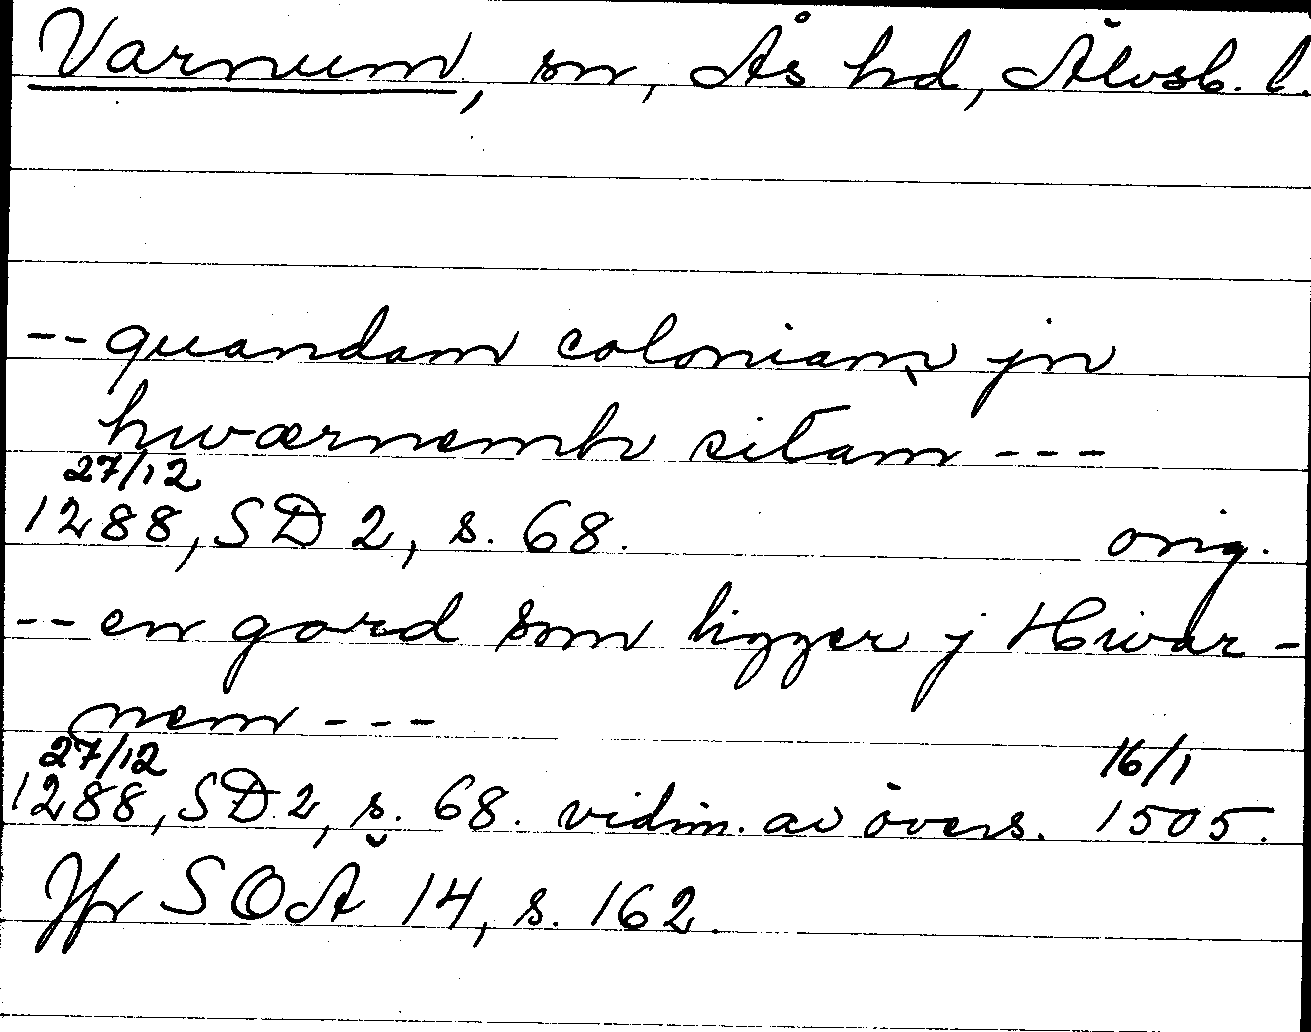 Varnum, sn, Ås hd, Älvsb. l.
-- quandam coloniam jn
hwærnemh sitam ---
27/12
1288, SD 2, s. 68. orig.
-- en gard som ligger j Hwar-
nem ---
27/12 16/1
1288, SD 2, s. 68. vidim. av övers. 1505.
Jfr SOÄ 14, s. 162.